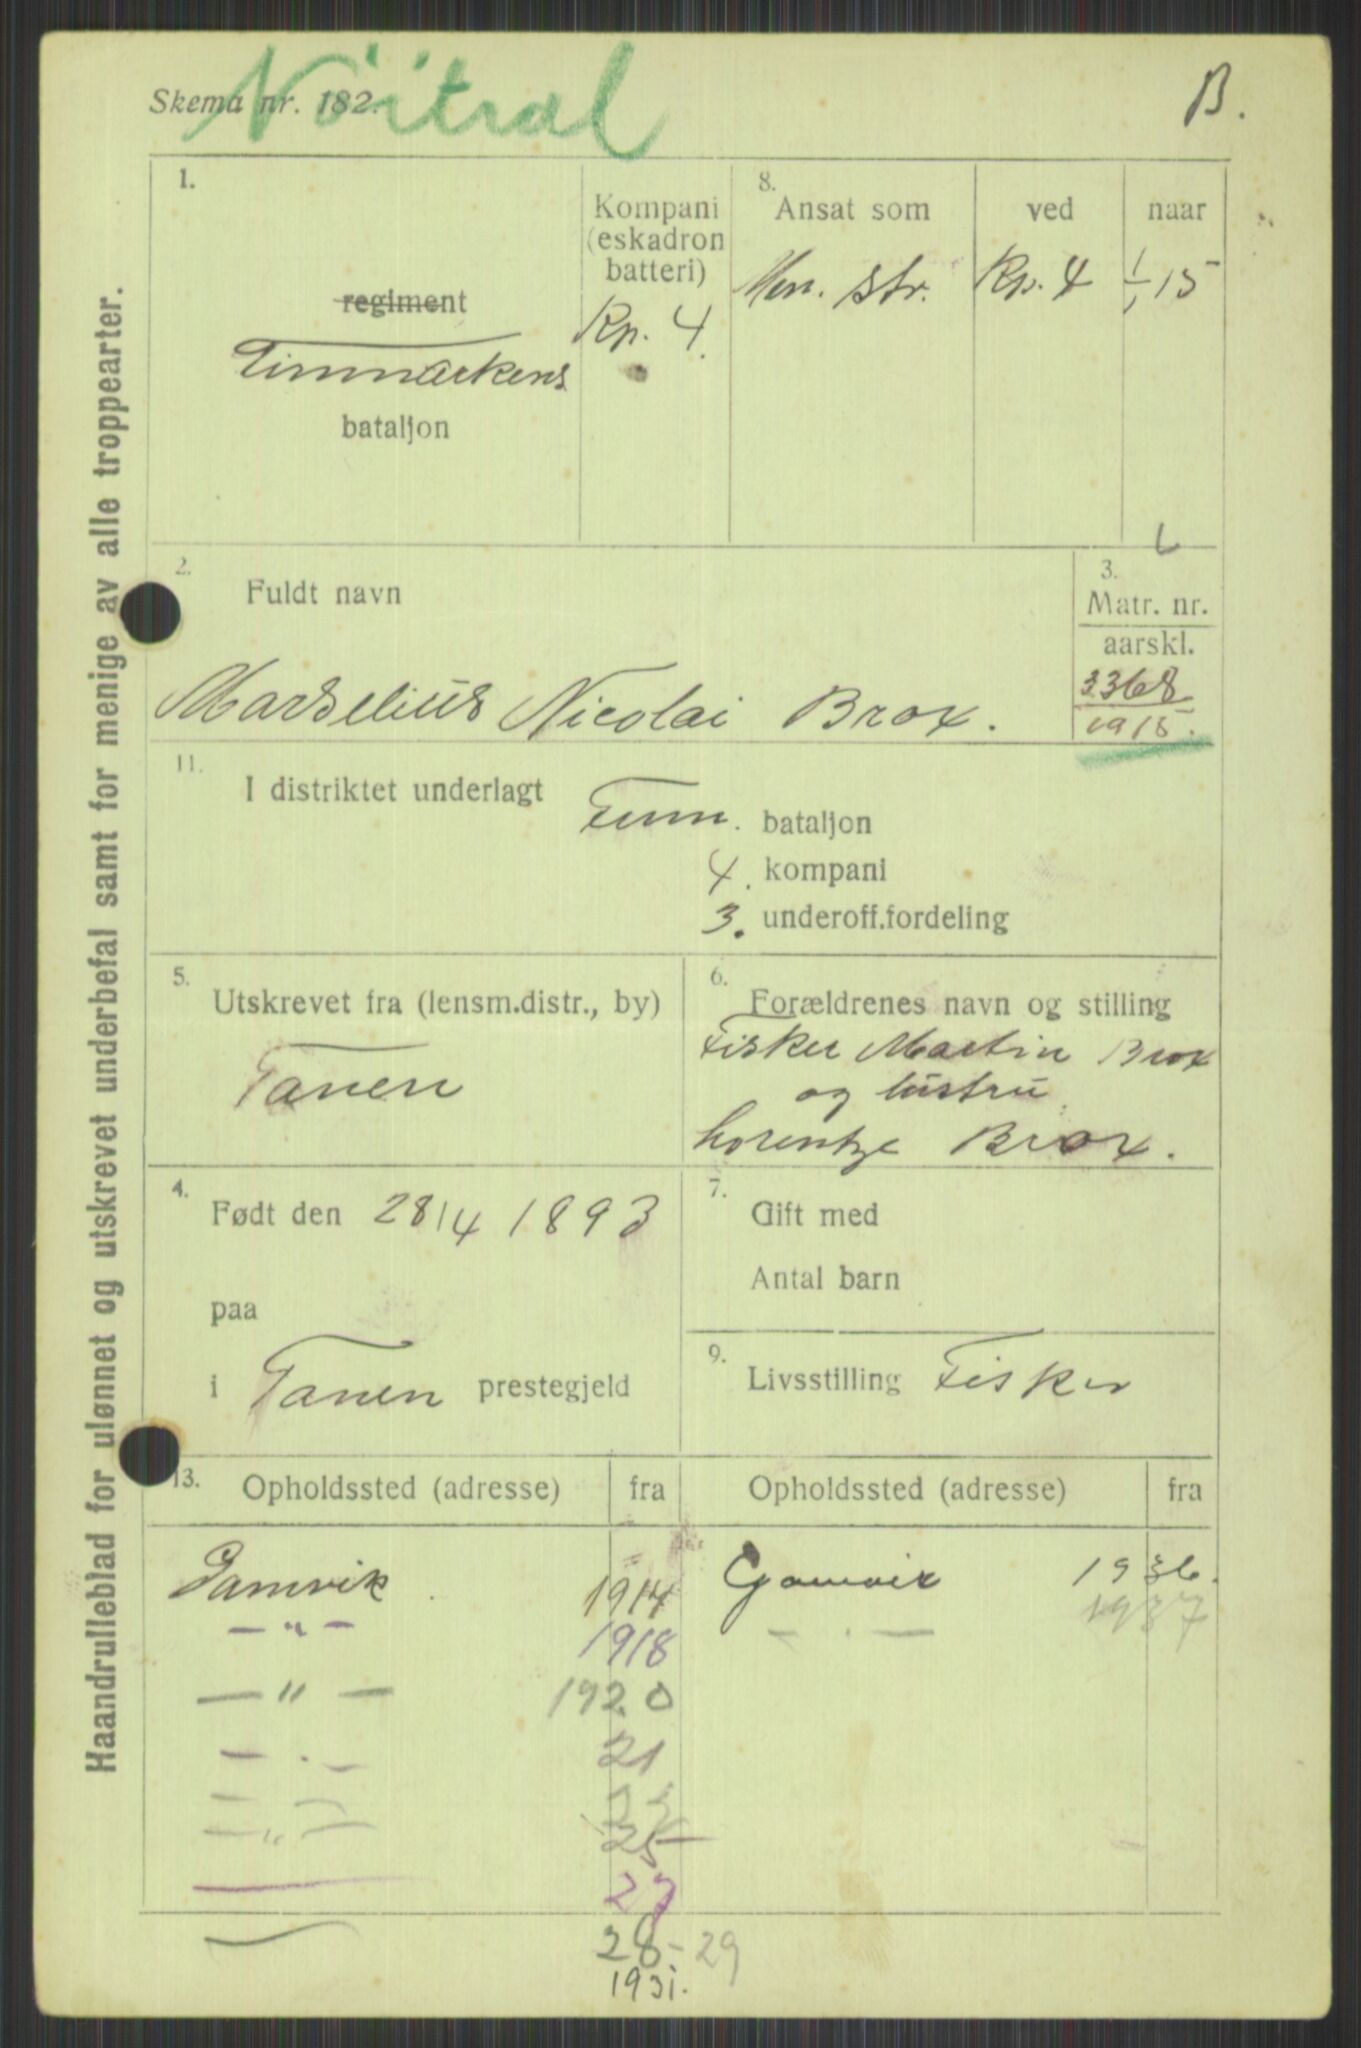 Nöitral
B.
Skema nr. 182.
Haandrulleblad for ulønnet og utskrevet underbefal samt for menige av alle troppearter.
1.
regiment
Finmarkens
bataljon
Kompani
(eskadron
batteri)
Kp. 4.
8.
Ansat som
Men. str.
ved
Kp. 4
naar
1/1 15
2.
Fuldt navn
Marselius Nicolai Brox.
6
3.
Matr. nr.
aarskl.
3368
1915.
11.
I distriktet underlagt
Finm. bataljon
4. kompani
3. underoff.fordeling
5.
Utskrevet fra (lensm.distr., by)
Tanen
6.
Forældrenes navn og stilling
Fisker Martin Brox
og hustru
Lorentze Brox.
4.
Født den 28/4 1893
paa
i Tanen prestegjeld
7.
Gift med
Antal barn
9.
Livsstilling Fisker
13.
Opholdssted (adresse) fra
Gamvik 1914
— " — 1918
— " — 1920
— . — 21
— " — 25
27
28 - 29
1931.
Opholdssted (adresse) fra
Gamvik 1936.
— . — 1937